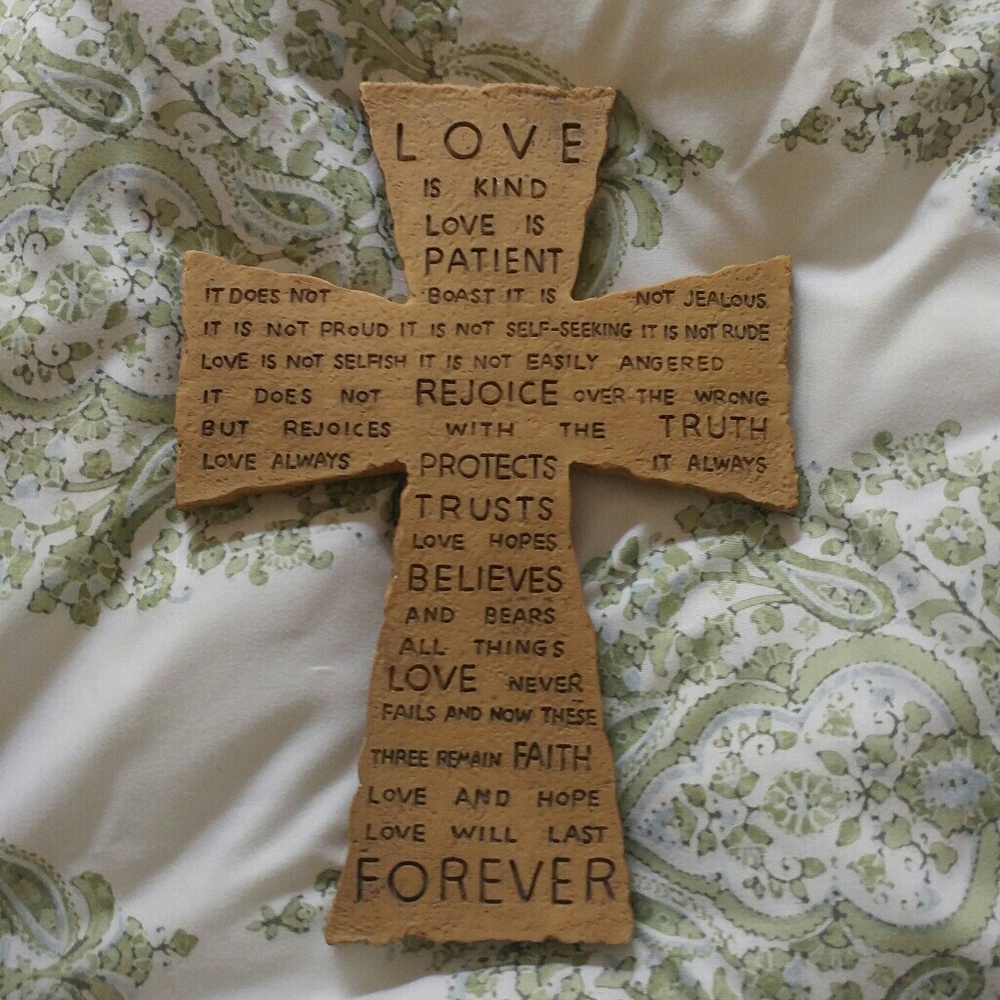 LOVE
IS KIND
LOVE IS
PATIENT
IT DOES NOT BOAST IT IS NOT JEALOUS
IT IS NOT PROUD IT IS NOT SELF-SEEKING IT IS NOT RUDE
LOVE IS NOT SELFISH IT IS NOT EASILY ANGERED
IT DOES NOT REJOICE OVER THE WRONG
BUT REJOICES WITH THE TRUTH
LOVE ALWAYS PROTECTS IT ALWAYS
TRUSTS
LOVE HOPES
BELIEVES
AND BEARS
ALL THINGS
LOVE NEVER
FAILS AND NOW THESE
THREE REMAIN FAITH
LOVE AND HOPE
LOVE WILL LAST
FOREVER